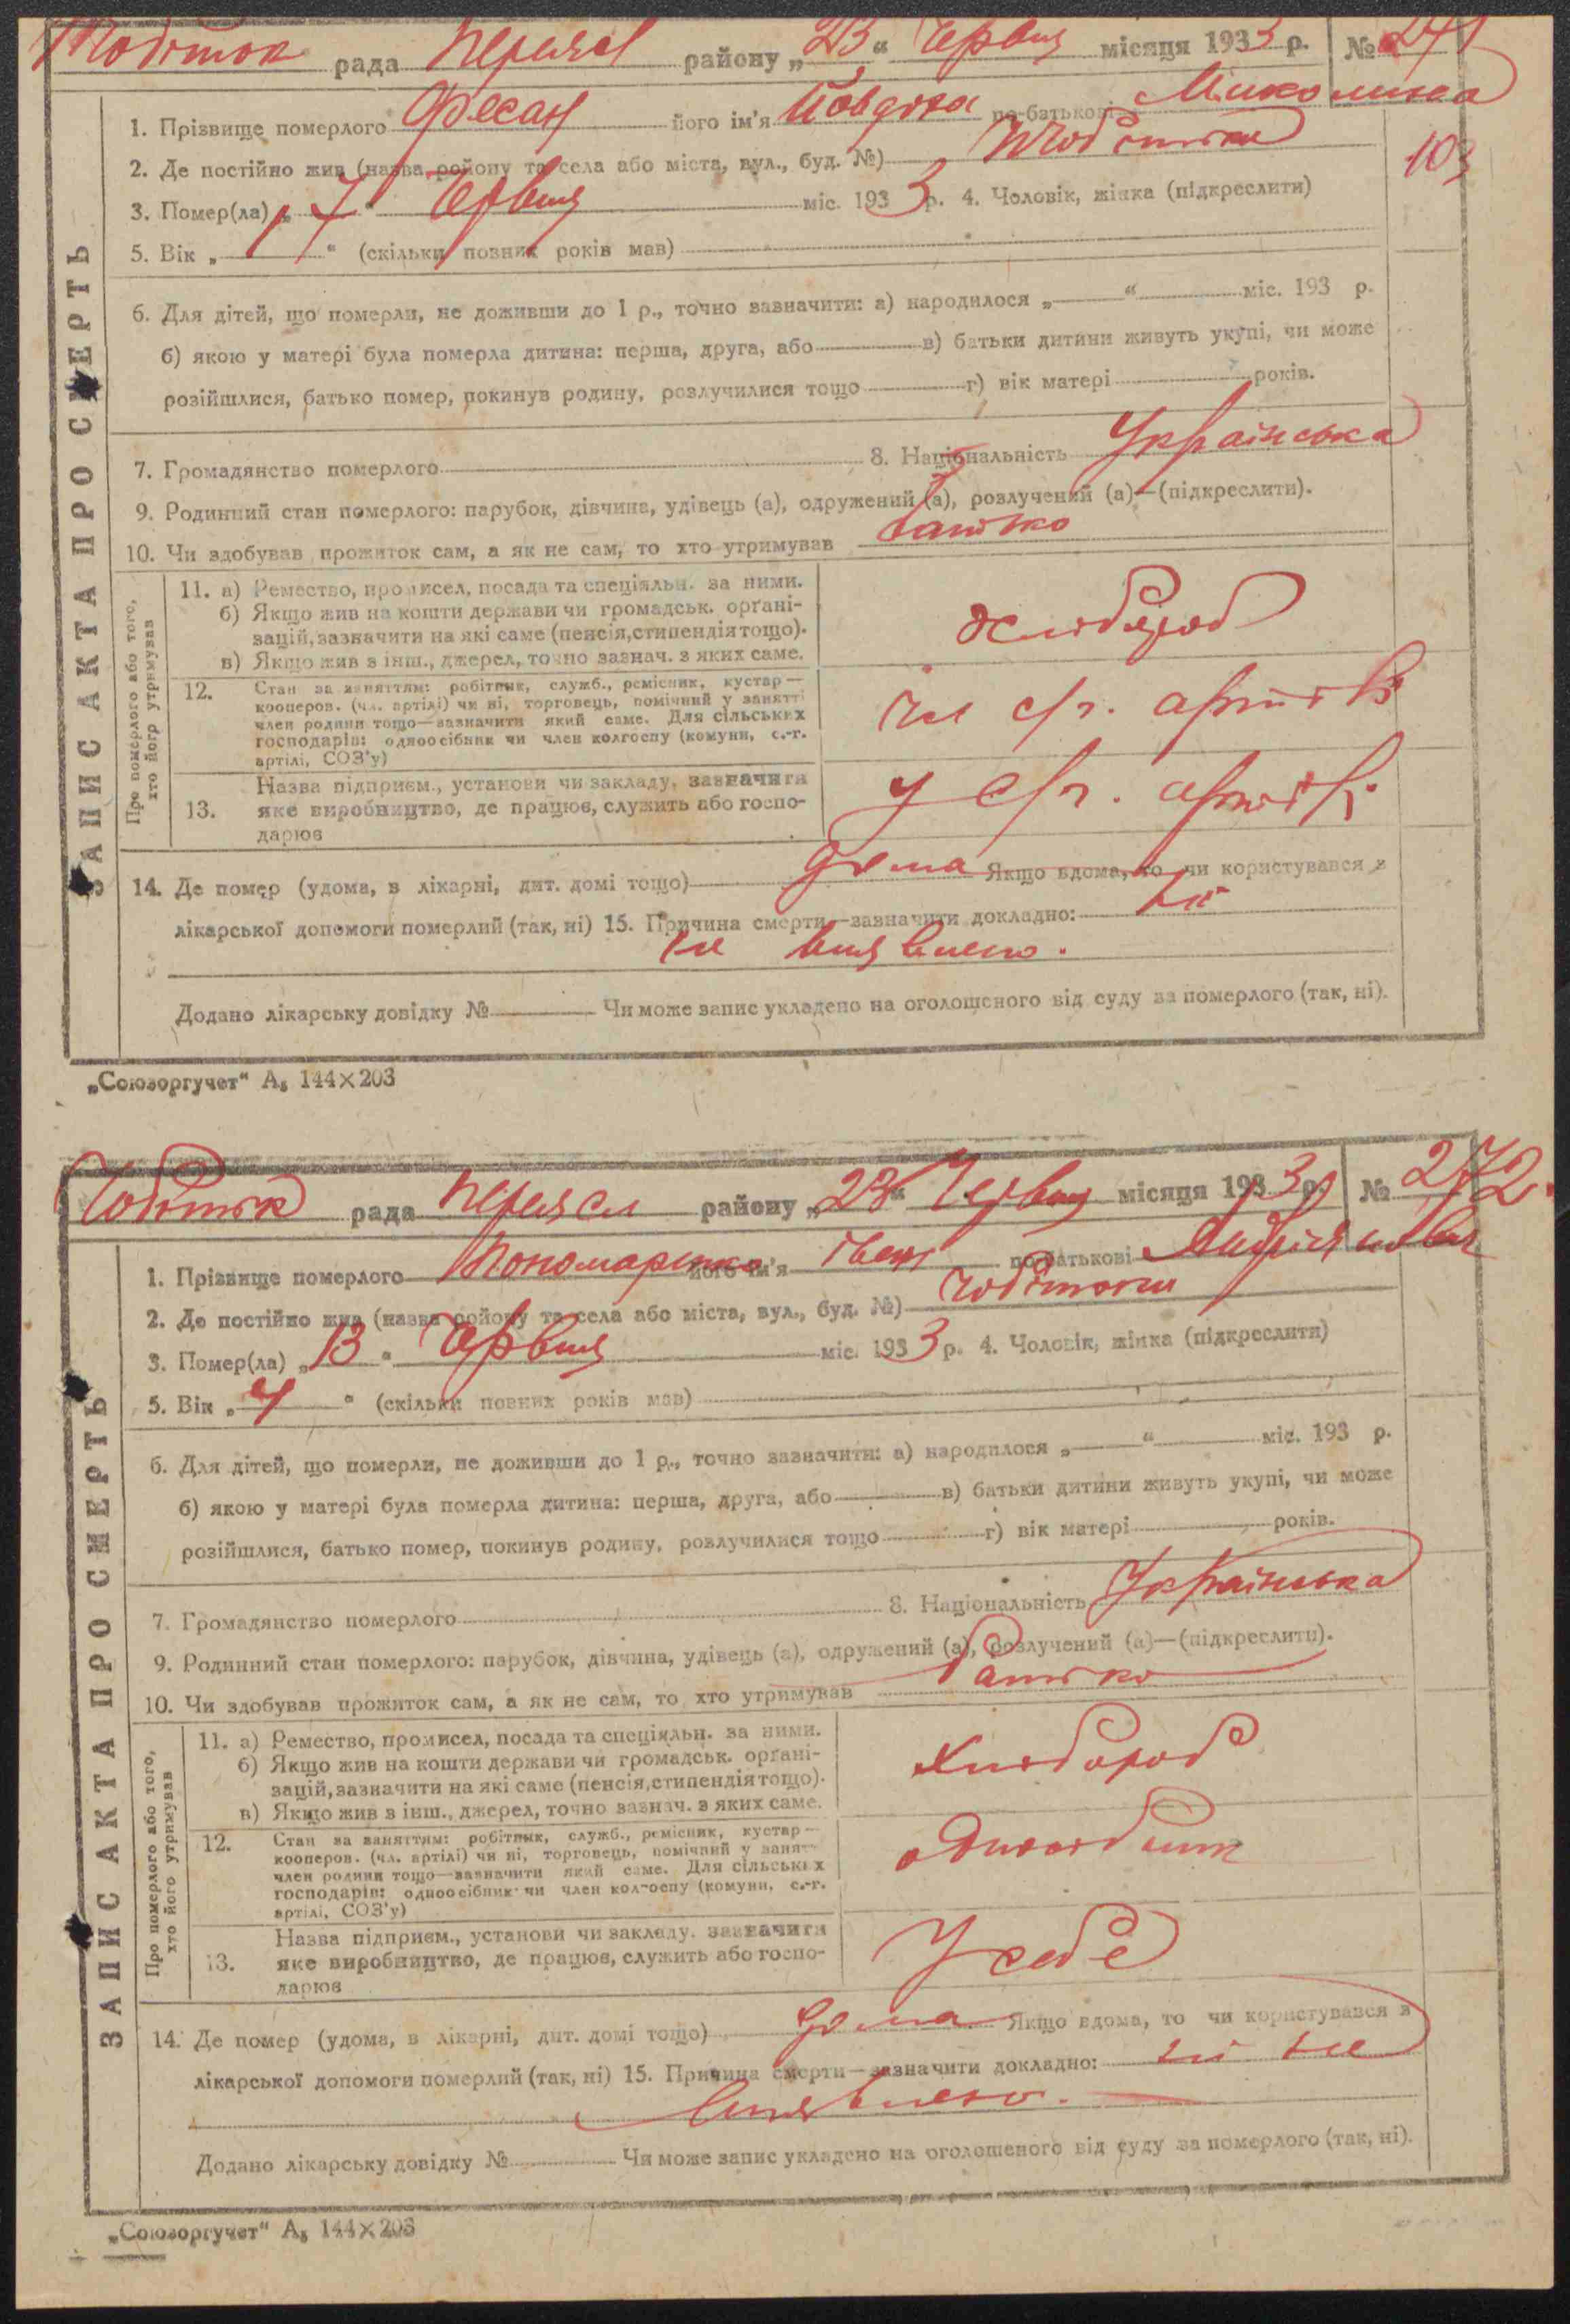 рада Переясл району „23“ Червня місяця 1933 р. № 271
1. Прізвище померлого Фесан його ім'я Йовдоха по-батькові
103
2. Де постійно жив (назва району та села або міста, вул., буд. №)
3. Помер(ла) „17“ Червня міс. 1933 р. 4. Чоловік, жінка (підкреслити)
5. Вік „ “ (скільки повних років мав)
6. Для дітей, що померли, не доживши до 1 р., точно зазначити: а) народилося „ “ міс. 193 р.
б) якою у матері була померла дитина: перша, друга, або в) батьки дитини живуть укупі, чи може
розійшлися, батько помер, покинув родину, розлучилися тощо г) вік матері років.
7. Громадянство померлого 8. Національність Українська
9. Родинний стан померлого: парубок, дівчина, удівець (а), одружений (а), розлучений (а)—(підкреслити).
10. Чи здобував прожиток сам, а як не сам, то хто утримував батько
ЗАПИС АКТА ПРО СМЕРТЬ
Про померлого або того, хто його утримував
11. а) Ремество, промисел, посада та спеціяльн. за ними.
б) Якщо жив на кошти держави чи громадськ. орґані-
зацій, зазначити на які саме (пенсія, стипендія тощо).
в) Якщо жив з інш., джерел, точно зазнач. з яких саме.
хлібороб
12. Стан за заняттям: робітник, служб., ремісник, кустар—
кооперов. (чл. артілі) чи ні, торговець, помічний у занятті
член родини тощо—зазначити який саме. Для сільських
господарів: одноосібник чи член колгоспу (комуни, с.-г.
артілі, СОЗ'у)
чл с/г. артілі
13. Назва підприєм., установи чи закладу, зазначити
яке виробництво, де працює, служить або госпо-
дарює
у с/г. артілі
14. Де помер (удома, в лікарні, дит. домі тощо) дома Якщо вдома, то чи користувався з
лікарської допомоги померлий (так, ні) 15. Причина смерти—зазначити докладно: ні
не виявлено.
Додано лікарську довідку № Чи може запис укладено на оголошеного від суду за померлого (так, ні).
„Союзоргучет“ А₅ 144×203
рада Переясл району „23“ Червня місяця 1933 р. № 272
1. Прізвище померлого Пономаренко його ім'я Іван по-батькові
2. Де постійно жив (назва району та села або міста, вул., буд. №) Чобітьки
3. Помер(ла) „13“ Червня міс. 1933 р. 4. Чоловік, жінка (підкреслити)
5. Вік „4“ (скільки повних років мав)
6. Для дітей, що померли, не доживши до 1 р., точно зазначити: а) народилося „ “ міс. 193 р.
б) якою у матері була померла дитина: перша, друга, або в) батьки дитини живуть укупі, чи може
розійшлися, батько помер, покинув родину, розлучилися тощо г) вік матері років.
7. Громадянство померлого 8. Національність Українська
9. Родинний стан померлого: парубок, дівчина, удівець (а), одружений (а), розлучений (а)—(підкреслити).
10. Чи здобував прожиток сам, а як не сам, то хто утримував батько
ЗАПИС АКТА ПРО СМЕРТЬ
Про померлого або того, хто його утримував
11. а) Ремество, промисел, посада та спеціяльн. за ними.
б) Якщо жив на кошти держави чи громадськ. орґані-
зацій, зазначити на які саме (пенсія, стипендія тощо).
в) Якщо жив з інш., джерел, точно зазнач. з яких саме.
хлібороб
12. Стан за заняттям: робітник, служб., ремісник, кустар—
кооперов. (чл. артілі) чи ні, торговець, помічний у занятті
член родини тощо—зазначити який саме. Для сільських
господарів: одноосібник чи член колгоспу (комуни, с.-г.
артілі, СОЗ'у)
одноосібник
13. Назва підприєм., установи чи закладу, зазначити
яке виробництво, де працює, служить або госпо-
дарює
У себе
14. Де помер (удома, в лікарні, дит. домі тощо) дома Якщо вдома, то чи користувався з
лікарської допомоги померлий (так, ні) 15. Причина смерти—зазначити докладно: ні не
виявлено.
Додано лікарську довідку № Чи може запис укладено на оголошеного від суду за померлого (так, ні).
„Союзоргучет“ А₅ 144×203